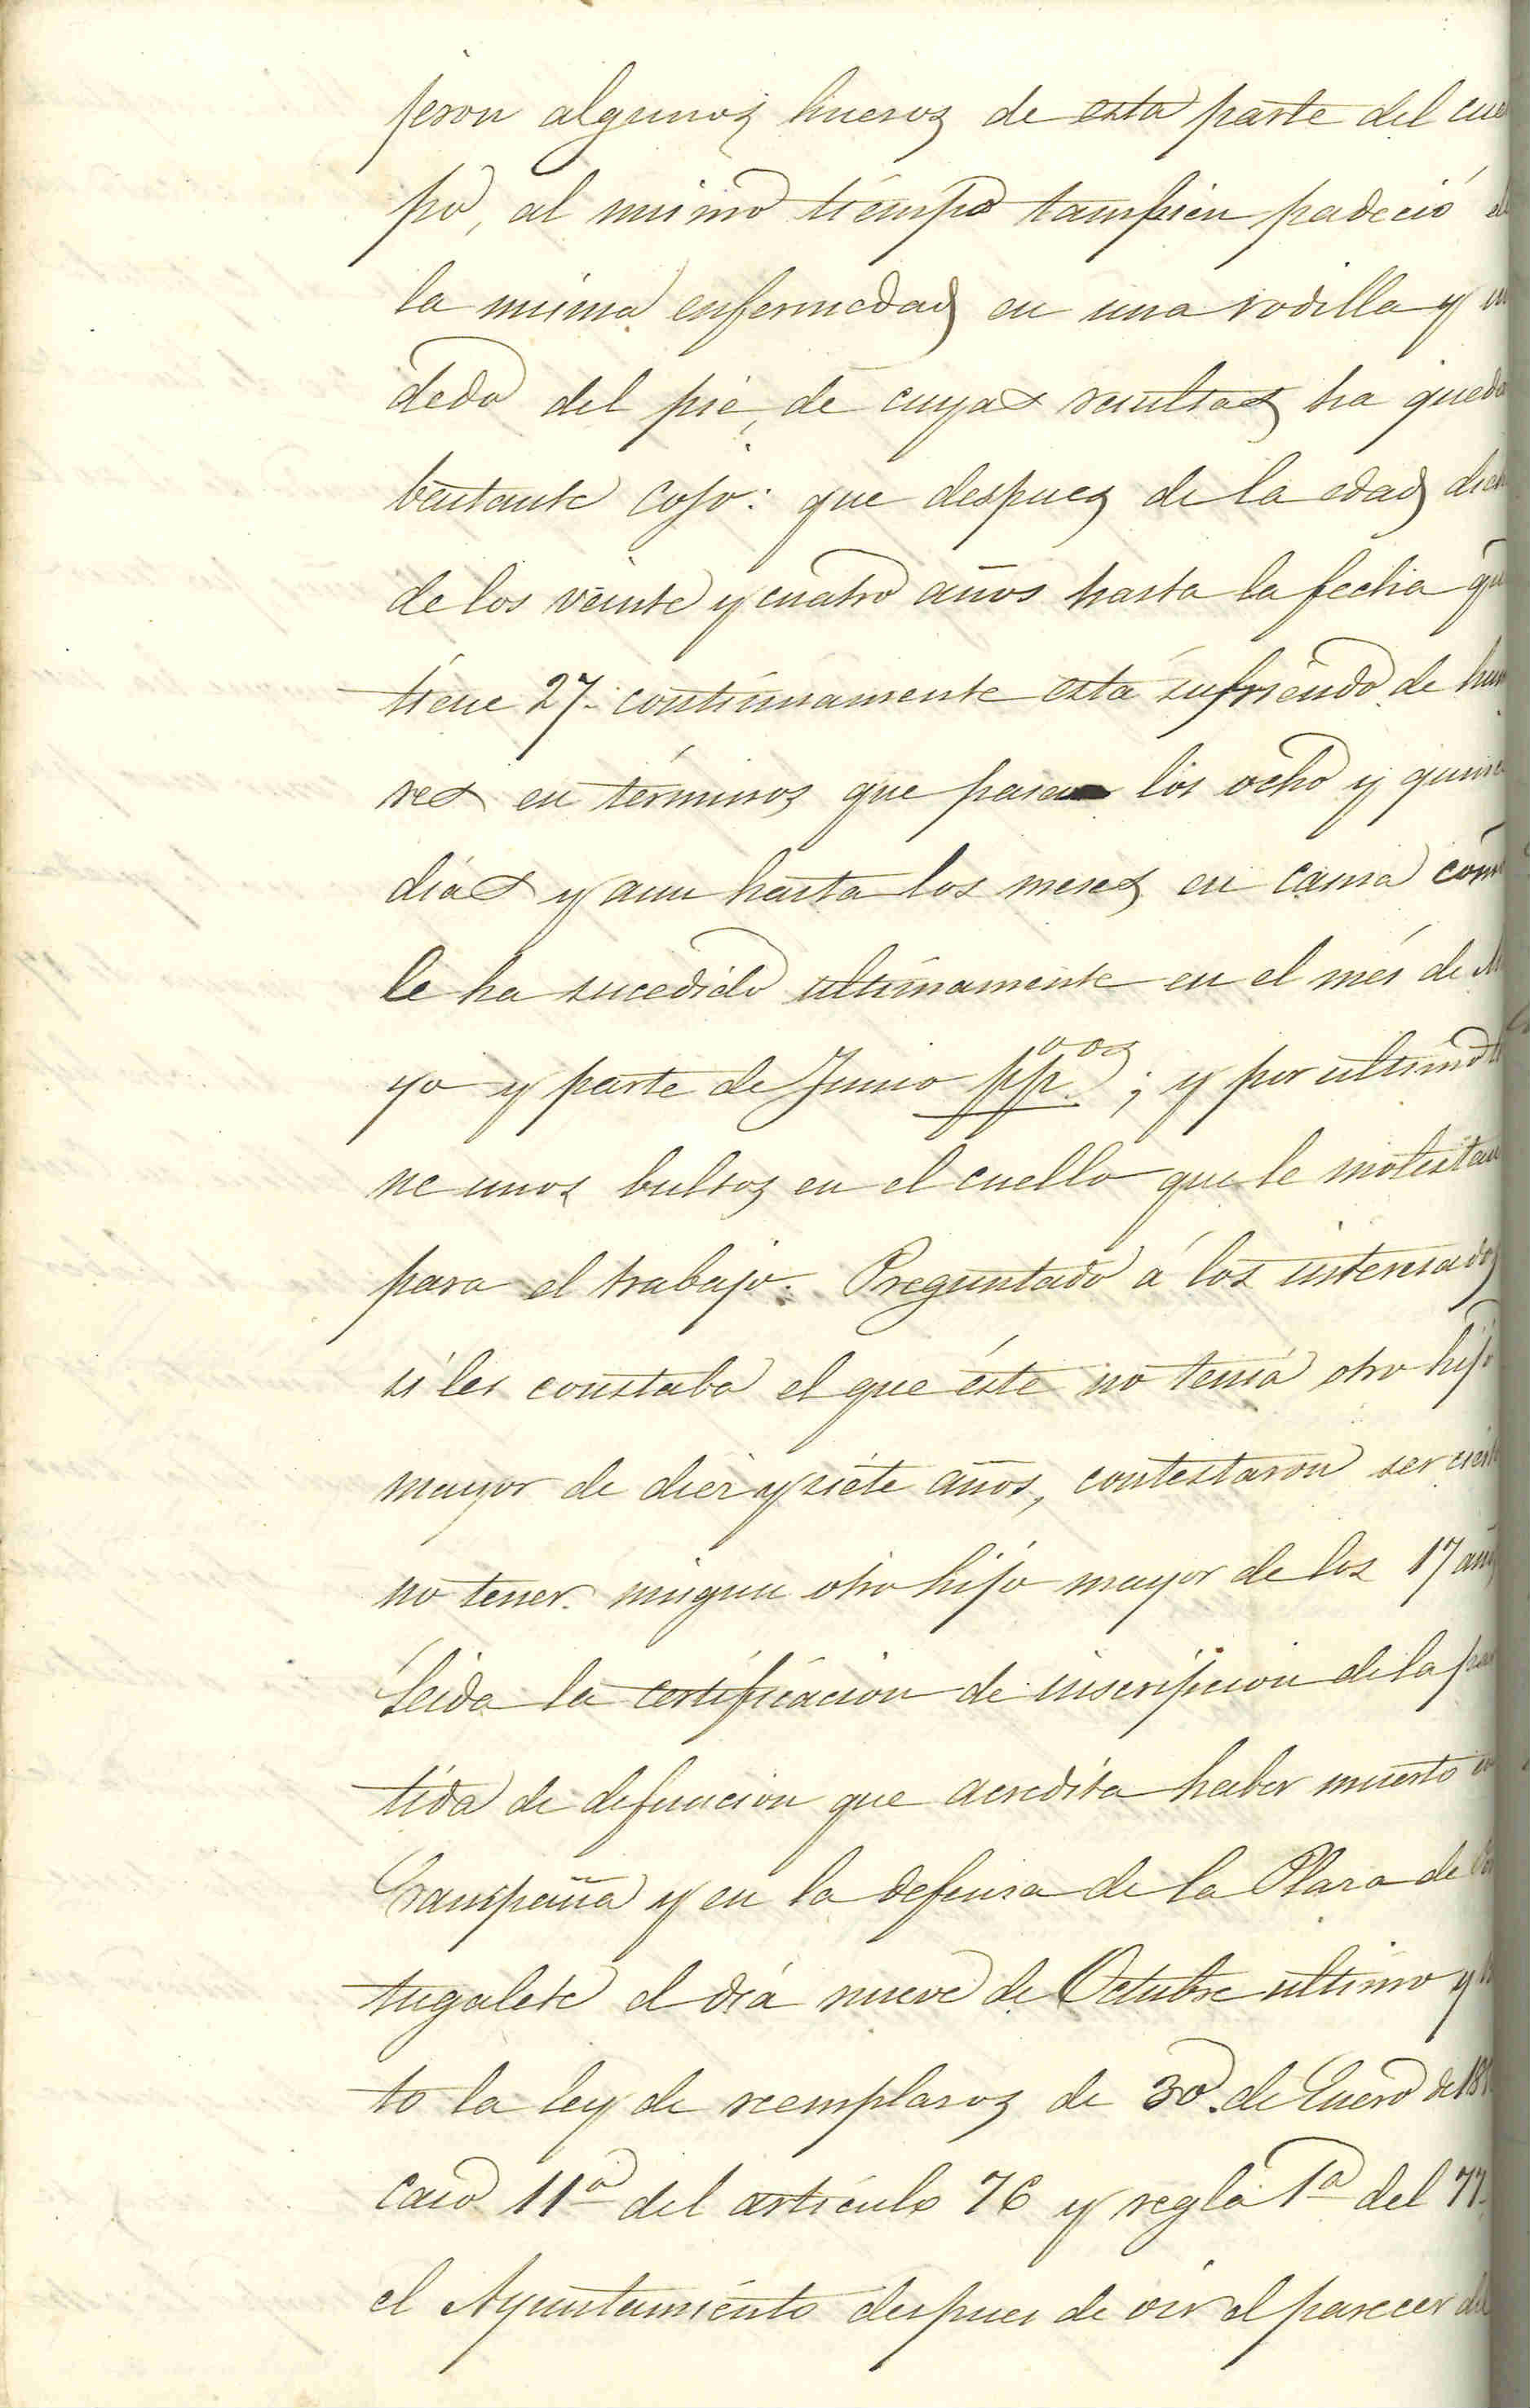 jeron algunos huesos de esta parte del cue
po, al mismo tiempo tambien padeció
la misma enfermedad en una rodilla y un
dedo del pié, de cuyas resultas ha queda
bastante cojo: que despues de la edad dich
de los veinte y cuatro años hasta la fecha qu
tiene 27. continuamente está sufriendo de hum
res en términos que pasa los ocho y quince
dias y aun hasta los meses en cama como
le ha sucedido ultimamente en el més de M
yo y parte de Junio pp.ᵒˢ; y por ultimo
ne unos bultos en el cuello que le molestan
para el trabajo. Preguntado á los interesados
si les constaba el que éste no tenia otro hijo
mayor de diez y siete años, contestaron ser cierto
no tener ningun otro hijo mayor de los 17 años
Leida la certificacion de inscripcion de la par
tida de defuncion que acredita haber muerto en
Campaña y en la defensa de la Plaza de Por
tugalete el dia nueve de Octubre ultimo y
to la ley de reemplazos de 30. de Enero de 18
caso 11º del articulo 76 y regla 1ª del 77.
el Ayuntamiento despues de oir el parecer del